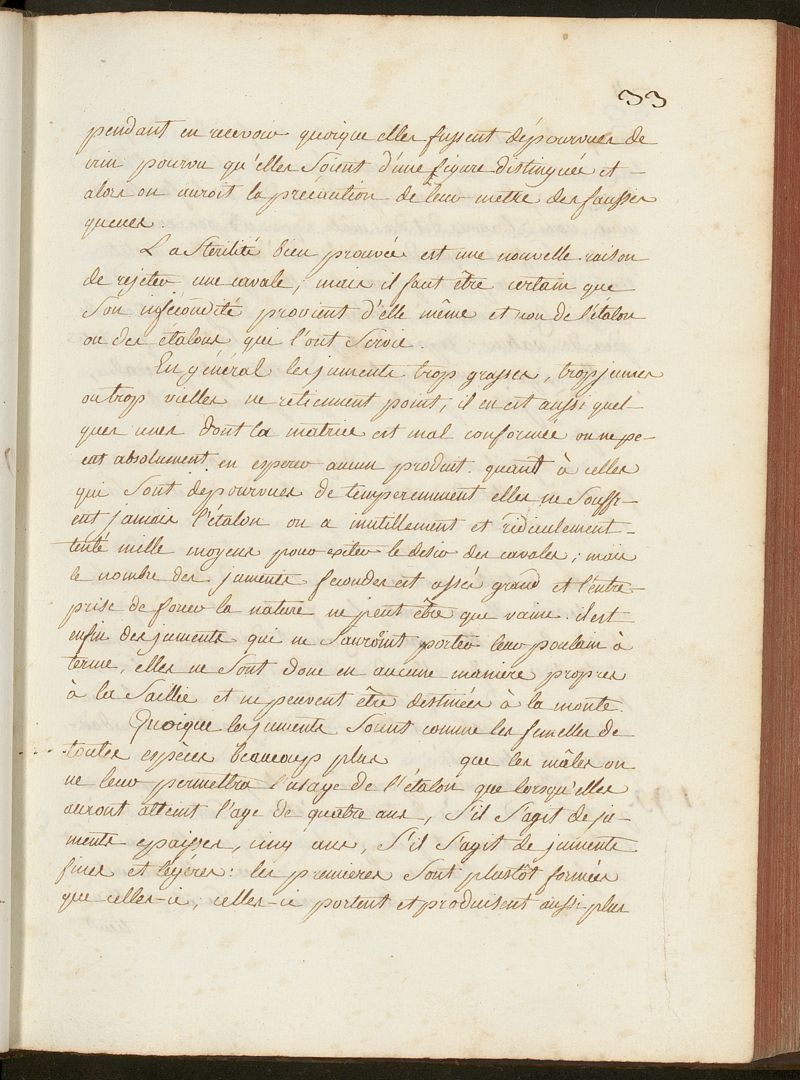 33
pendant en recevoir quoique elles fussent dépourvues de
crin pourvu qu'elles soient d'une figure distinguée et -
alors on auroit la précaution de leur metre des fausses
queues.
La Stérilité bien prouvée est une nouvelle raison
de rejeter une cavale, mais il faut être certain que
son infécondité provient d'elle même et non de l'étalon
ou des etalons qui l'ont servie.
En général les juments trop grasses, trop jeunes
ou trop vielles ne retiennent point, il en est aussi quel-
ques unes dont la matrice est mal conformée on ne pe-
eut absolument en esperer aucun produit. quant à celles
qui sont depourvues de temperemment elles ne souffr-
ent jamais l'étalon on a inutillement et ridiculement -
tenté mille moyens pour exiter le desir des cavales; mais
le nombre des juments fecondes est assés grand et l'entre-
prise de forcer la nature ne peut être que vaine. il est
enfin des juments qui ne sauroint porter leur poulain à
terme, elles ne sont donc en aucune maniere propres
à la Saillie et ne peuvent être destinées à la monte.
Quoique les juments soint comme les femelles de
toutes espèces beaucoup plus que les mâles on
ne leur permettra l'usage de l'étalon que lorsqu'elles
auront atteint l'age de quatre ans, s'il s'agit de ju-
ments epaisses, cinq ans, s'il s'agit de juments
fines et légéres: les premieres sont plustôt formées
que celles-ci, celles-ci portent et produisent aussi plus